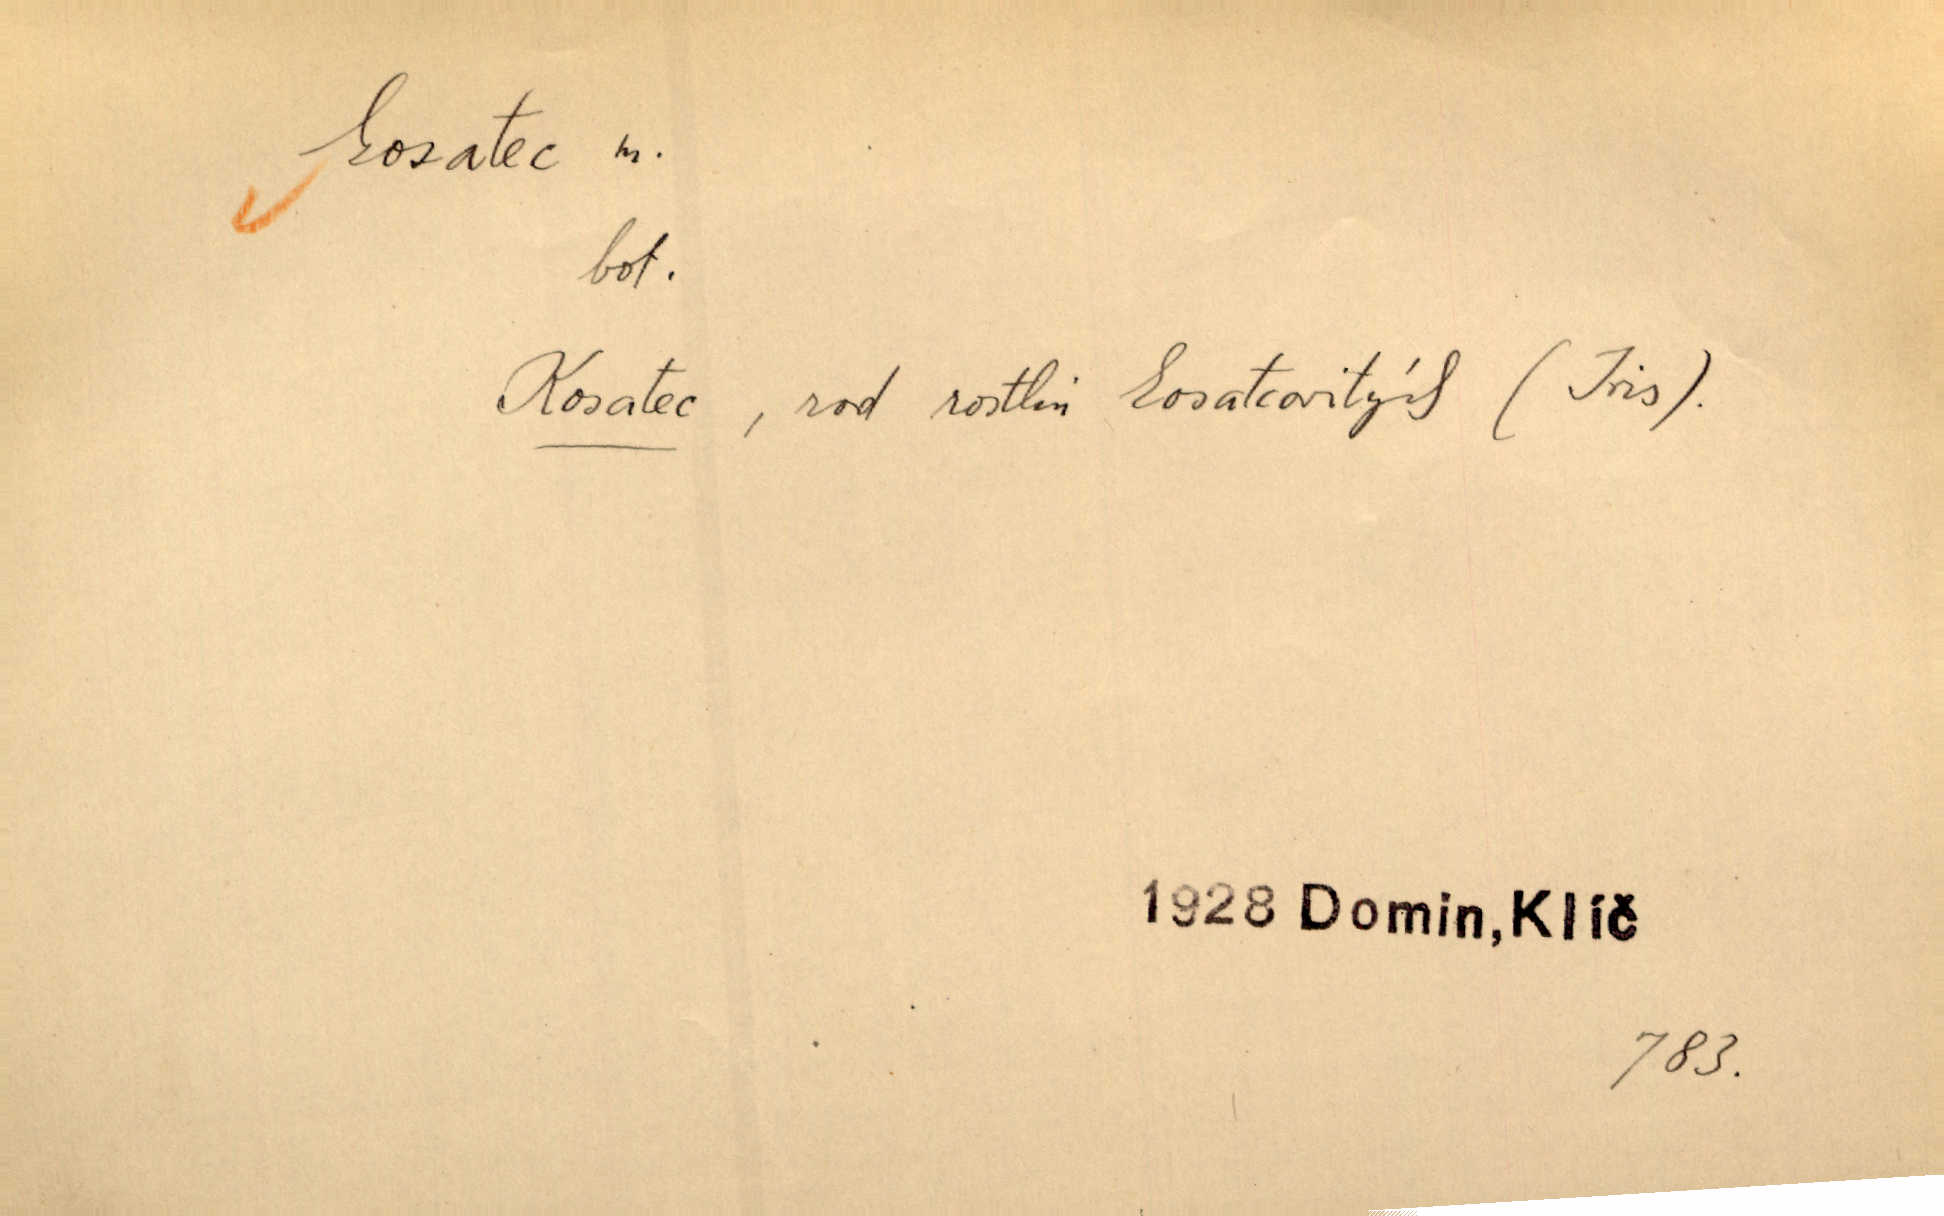 kosatec m.
bot.
Kosatec, rod rostlin kosatcovitých (Iris).
1928 Domin, Klíč
783.